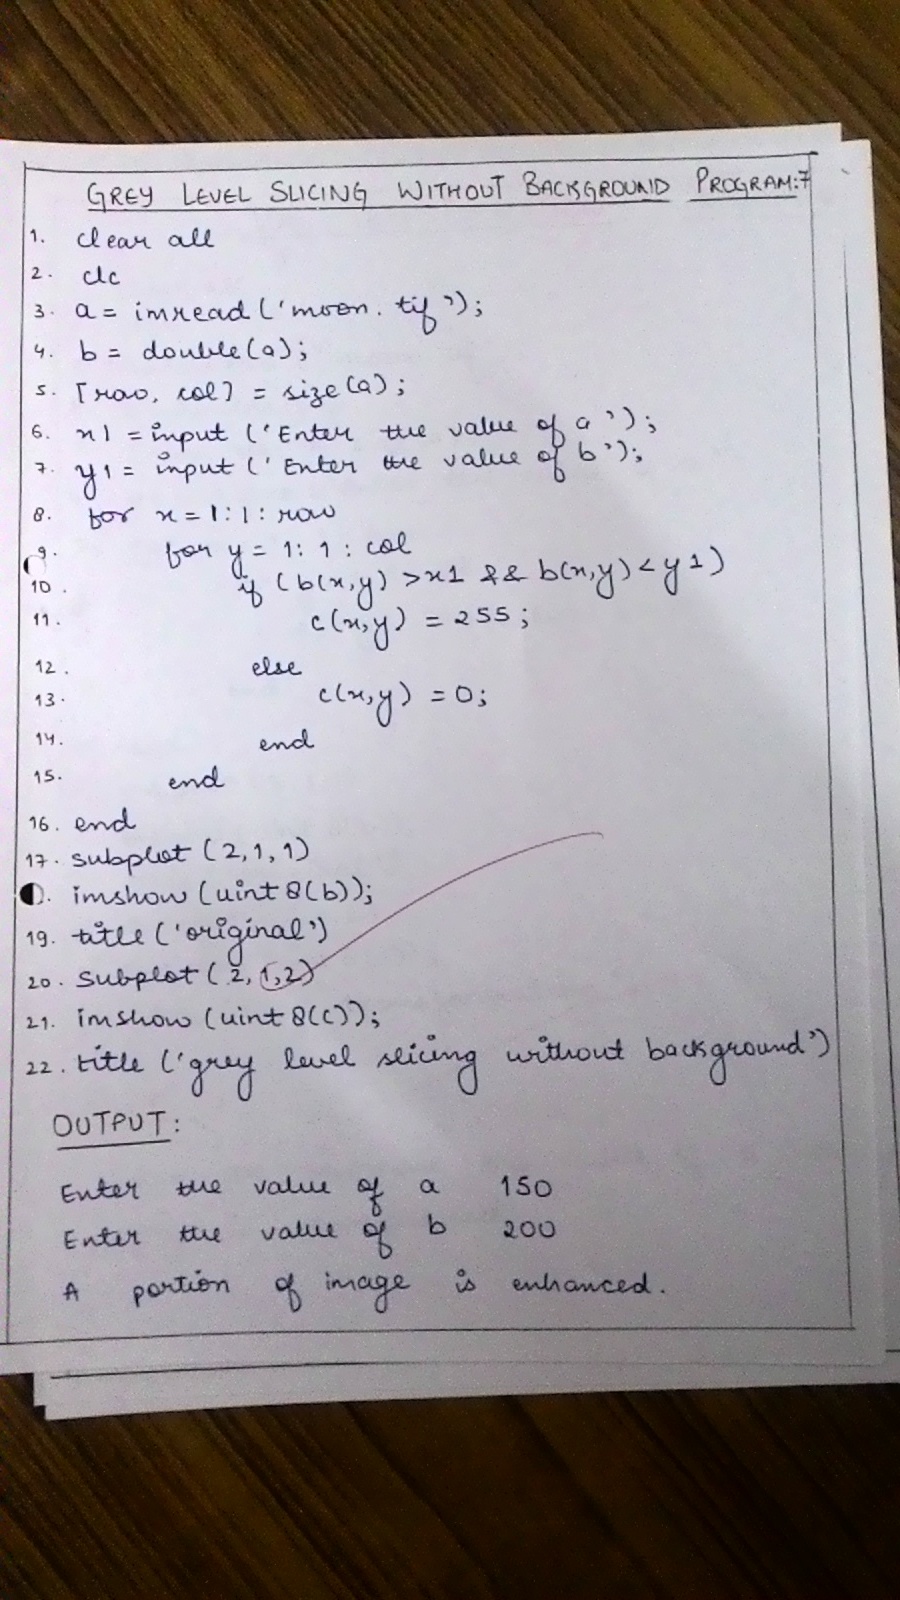 GREY LEVEL SLICING WITHOUT BACKGROUND PROGRAM:7
1. clear all
2. clc
3. a = imread ('moon.tif');
4. b = double(a);
5. [row, col] = size(a);
6. x1 = input ('Enter the value of a');
7. y1 = input ('Enter the value of b');
8. for x = 1:1:row
9. for y = 1:1:col
10. if (b(x,y) > x1 && b(x,y) < y1)
11. c(x,y) = 255;
12. else
13. c(x,y) = 0;
14. end
15. end
16. end
17. subplot (2,1,1)
imshow (uint8(b));
19. title ('original')
20. subplot (2,1,2)
21. imshow (uint8(c));
22. title ('grey level slicing without background')
OUTPUT:
Enter the value of a 150
Enter the value of b 200
A portion of image is enhanced.